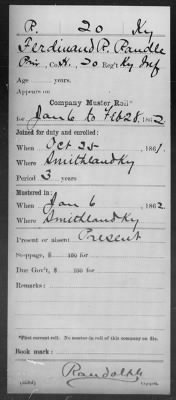 R. 20 Ky
Ferdinand R. Randle
Priv., Co. H, 20 Reg't Ky. Inf
Age years.
Appears on
Company Muster Roll*
for Jan 6 to Feb 28, 1862
Joined for duty and enrolled:
When Oct 25, 1861.
Where Smithland Ky
Period 3 years
Mustered in:
When Jan 6, 1862.
Where Smithland Ky
Present or absent Present
Stoppage, $ 100 for
Due Gov't, $ 100 for
Remarks:
*First current roll. No muster in roll of this company on file.
Book mark:
Randolph
Copyist.